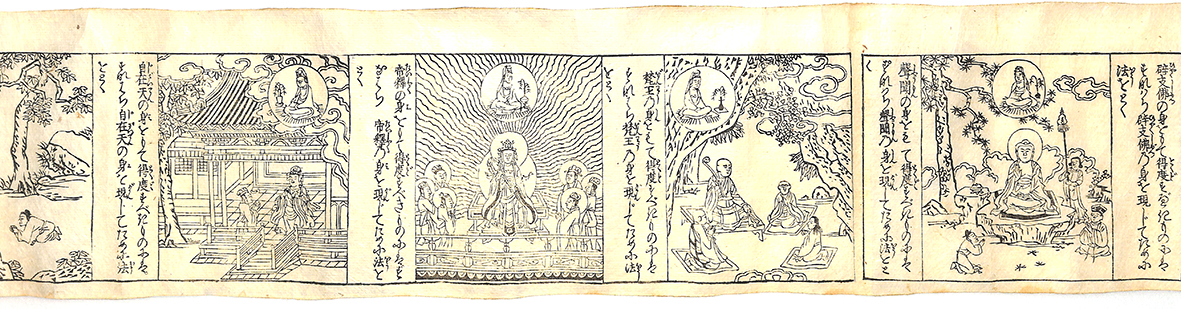 辟支佛の身をもつて得度すべきものにハ
すなハち辟支佛乃身を現じてために
法をとく
聲聞の身をもつて得度すべきものにハ
すなハち聲聞の身を現じてために法をと
く
梵王乃身をもつて得度すべきものにハ
すなハち梵王乃身を現じてために法
をとく
帝釋の身をもつて得度すべきものにハす
なハち帝釋乃身を現じてために法を
とく
自在天の身をもつて得度すべきものにハ
すなハち自在天の身を現じてために法
をとく